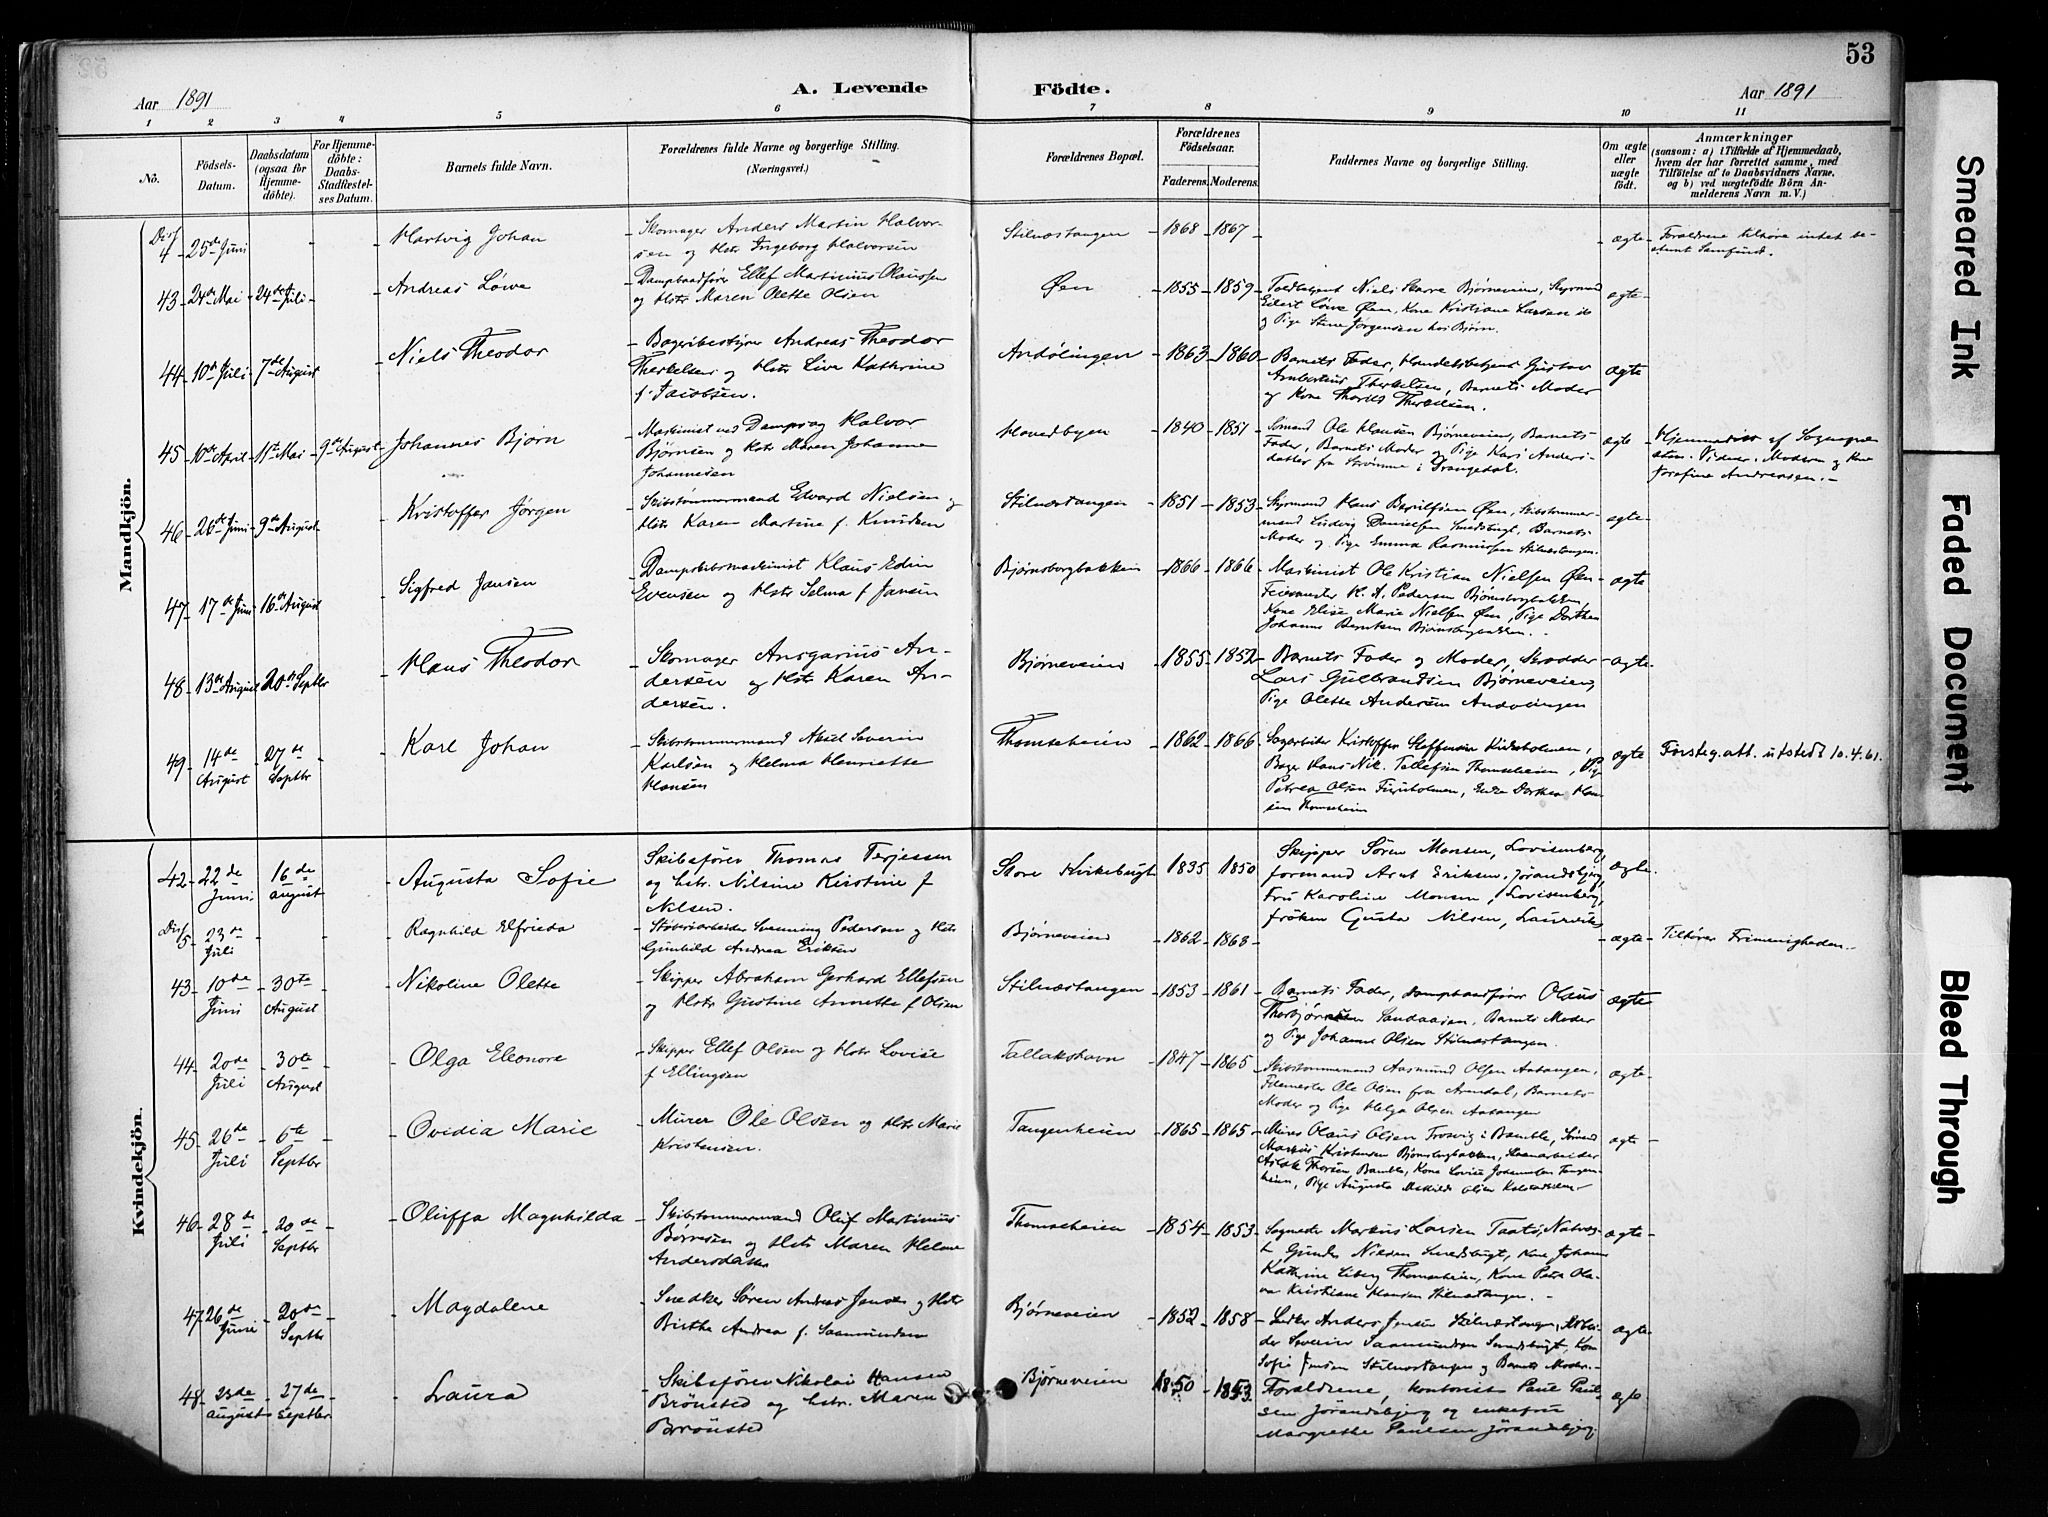 53
Aar 1891
A. Levende Födte.
Aar 1891
1 2 3 4 5 6 7 8 9 10 11
No.
Födsels-Datum.
Daabsdatum (ogsaa for Hjemmedöbte).
For Hjemmedöbte: Daabs-Stadfæstelses Datum.
Barnets fulde Navn.
Forældrenes fulde Navne og borgerlige Stilling.
(Næringsvei.)
Forældrenes Bopæl.
Forældrenes Födselsaar.
Faderens. Moderens.
Faddernes Navne og borgerlige Stilling.
Om ægte eller uægte født.
Anmærkninger
(saasom: a) i Tilfælde af Hjemmedaab, hvem der har forrettet samme, med Tilföielse af to Daabsvidners Navne, og b) ved uægtefödte Börn Anmelderens Navn m. V.)
Mandkjön.
Diss 4 25de Juni Hartvig Johan
Skomager Anders Martin Halvorsen og Hstr Ingeborg Halvorsen
Stilnæstangen 1868 1867 ægte
Forældrene tilhøre intet bestemt Samfund.
43 24de Mai 24de Juli Andreas Løwe
Dampbaadfører Ellef Martinius Olaussen og Hstr Maren Olette Olsen
Øen 1855 1859
Toldbetjent Niels Bjørneveien, Styrmand Eilert Løwe Øen, Kone Kristiane Larsen og Pige Stine Jørgensen
ægte
44 10de Juli 7de August Niels Theodor
Bageribestyrer Andreas Theodor Therkelsen og Hstr Live Kathrine f. Jacobsen.
Andölingen 1863 1860
Barnets Fader, Handelsbetjent Gustav Therkelsen, Barnets Moder og Kone Therkelsen.
ægte
45 10de April 11te Mai 9de August Johannes Bjørn
Maskinist ved Dampsag Halvor Bjørnsen og Hstr Maren Johanne Johannesen
Hovedbyen 1840 1851
Sømand Ole Hansen Bjørneveien, Barnets Fader, Barnets Moder og Pige Kari Andersdatter fra Strømme i Drangedal.
ægte
Hjemmedøbt af Sognepræsten. Vidner: Moderen og Kone Josefine Andreasen.
46 26de Juni 9de August Kristoffer Jørgen
Skibstømmermand Edvard Nielsen og Hstr Karen Martine f. Knudsen
Stilnæstangen 1851 1853
Styrmand Hans Øen, Skibstømmermand Ludvig Danielsen Smedsbugt, Barnets Moder og Pige Emma Rasmussen Stilnæstangen.
ægte
47 17de Juni 16de August Sigfred Jansen
Dampskibsmaskinist Klaus Edin Evensen og Hstr Selma f. Jansen
Bjørnsborgbakken 1866 1866
Maskinist Ole Kristian Nielsen Øen, Feiermester H. A. Pedersen Bjørnsborgbakken, Kone Elise Marie Nielsen Øen, Pige Dorthea Johanne Berntsen Bjørnsborgbakken.
ægte
48 13de August 20de Septbr Hans Theodor
Skomager Ansgarius Andersen og Hstr Karen Andersen.
Bjørneveien 1855 1852
Barnets Fader og Moder, Skrædder Lars Gulbrandsen Bjørneveien, Pige Olette Andersen Andölingen
ægte
49 14de August 27de Septbr Karl Johan
Skibstømmermand Aksel Severin Karlsen og Helma Henriette Hansen
Thomseheien 1862 1866
Sagarbeider Kristoffer Steffensen Kirkeholmen, Bager Hans Nik. Tellefsen Thomseheien, Pige Petrea Olsen Furuholmen, Enke Dorthea Hansen Thomseheien
ægte
Forsteg. att. utstedt 10.4.61.
Kvindekjön.
42 22de Juni 16de august Augusta Sofie
Skibsfører Thomas Terjessen og hstr. Nilsine Kirstine f Nilsen.
Store Kirkebugt 1835 1850
Skipper Søren Monsen, Lovisenberg, formand Arnt Eriksen, Jørandsbjerg, Fru Karoline Monsen, Lovisenberg, frøken Gusta Nilsen, Laurvik
ægte.
Diss 5 23de Juli Ragnhild Elfrieda
Støberiarbeider Svenning Pedersen og Hstr Gunhild Andrea Eriksen
Bjørneveien 1862 1863 ægte
Tilhører Frimenigheden.
43 10de Juni 30te August Nikoline Olette
Skipper Abraham Gerhard Ellefsen og Hstr Gustine Annette f. Olsen
Stilnæstangen 1853 1861
Barnets Fader, Dampbaadfører Olaus Thorbjørnsen Sandaasen, Barnets Moder og Pige Johanne Olsen Stilnæstangen.
ægte
44 20de Juli 30te August Olga Eleonore
Skipper Ellef Olsen og Hstr Lovise f Ellingsen
Tallakshavn 1847 1865
Skibstømmermand Aasmund Olsen Aatangen, Ole Olsen fra Arendal, Barnets Moder og Pige Helga Olsen Aatangen
ægte
45 26de Juli 6te Septbr Ovidia Marie
Murer Ole Olsen og Hstr Marie Kristensen.
Tangenheien 1865 1865
Murer Olaus Olsen Trosvig i Bamble, Sømand Markus Kristensen Bjørnsborgbakken, Thorsen Bamble, Kone Lovise Tangenheien, Pige Augusta Mathilde Olsen
ægte
46 28de Juli 20de Septbr Oluffa Magnhilda
Skibstømmermand Oluf Martinius Børresen og Hstr Maren Helene Andersdatter
Thomseheien 1854 1853
Markus Larsen Taatø, Gunder Nielsen Smedsbugt, Kone Johanne Kathrine Liberg Thomseheien, Kone Olava Kristiane Hansen Stilnæstangen.
ægte
47 26de Juni 20de Septbr Magdalene
Snedker Søren Andreas Jensen og Hstr Birthe Andrea f. Saamundsen
Bjørneveien 1852 1858
Snedker Anders Jensen Stilnæstangen, Arbeider Severin Saamundsen Smedsbugt, Kone Sofie Jensen Stilnæstangen og Barnets Moder.
ægte
48 23de august 27de septbr Laura
Skibsfører Nikolai Hansen Brönsted og hstr. Maren Brönsted
Bjørneveien 1850 1853
Forældrene, kontorist Paul Paulsen Jörandsbjerg og enkefru Margrethe Paulsen Jörandsbjerg.
ægte
Smeared Ink
Faded Document
Bleed Through